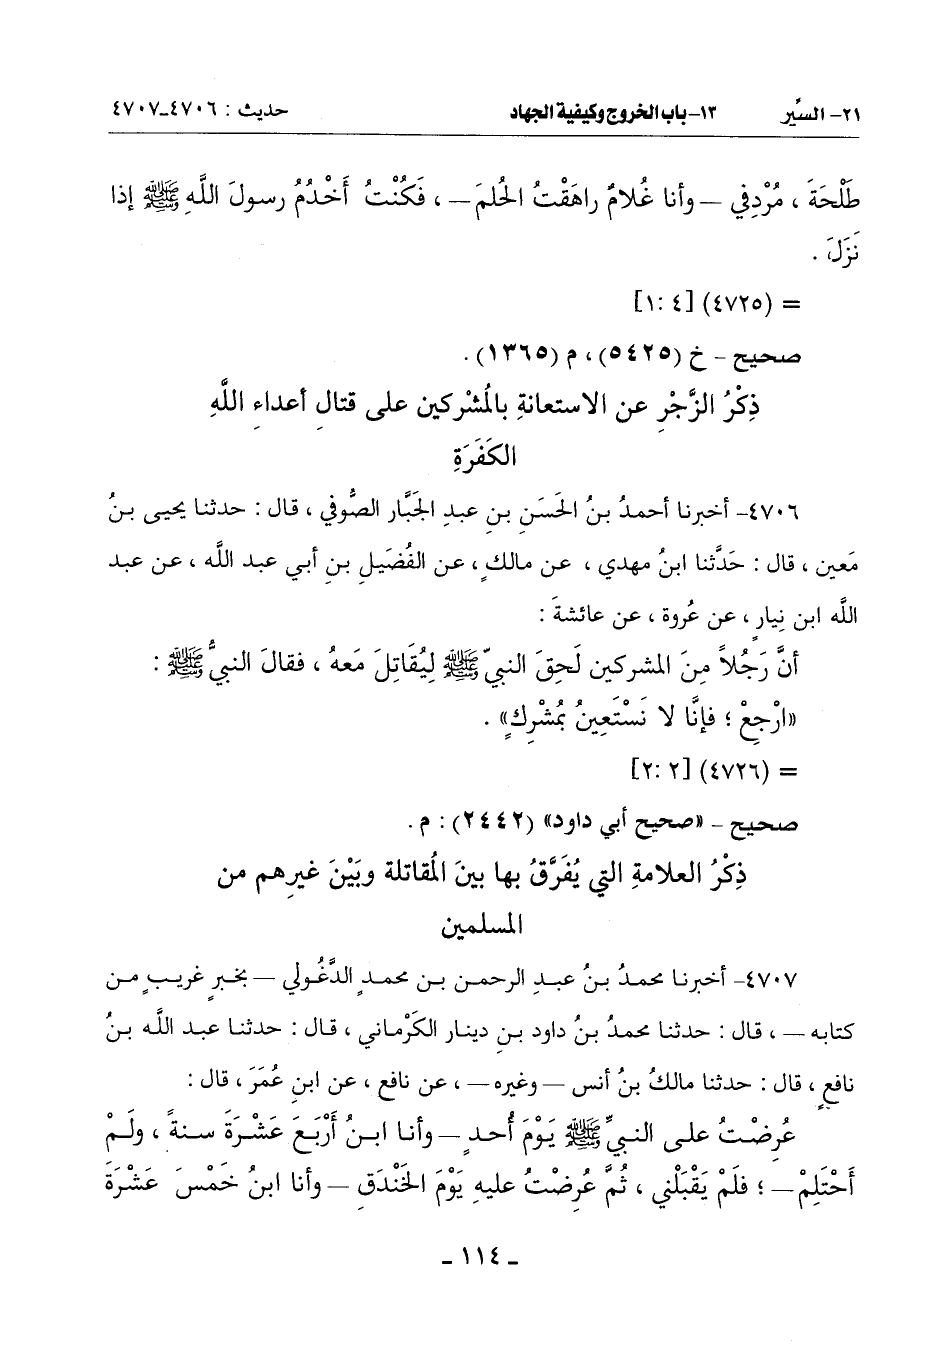 ٢١- السِّيَر ١٣-باب الخروج وكيفية الجهاد حديث : ٤٧٠٦-٤٧٠٧
طَلْحَةَ ، مُرْدِفي – وأنا غُلامٌ راهَقْتُ الحُلمَ – ، فَكُنْتُ أَخْدُمُ رسولَ اللَّهِ ﷺ إذا
نَزَلَ .
= (٤٧٢٥) [٤ :١]
صحيح - خ (٥٤٢٥) ، م (١٣٦٥) .
ذِكْرُ الزَّجْرِ عن الاستعانةِ بالمُشْركين على قتالِ أعداءِ اللَّهِ
الكَفَرَةِ
٤٧٠٦- أخبرنا أحمدُ بنُ الحَسَنِ بنِ عبدِ الجَبَّار الصُّوفي ، قال : حدثنا يحيى بنُ
مَعين ، قال : حَدَّثنا ابنُ مهدي ، عن مالكٍ ، عن الفُضَيلِ بنِ أبي عبد الله ، عن عبد
اللَّه ابن نِيارٍ ، عن عُروة ، عن عائشةَ :
أنَّ رَجُلاً مِنَ المشركين لَحِقَ النبيّ ﷺ لِيُقَاتِلَ مَعهُ ، فقالَ النبيُّ ﷺ :
«ارْجِعْ ؛ فإنَّا لا نَسْتَعِينُ بمُشْركٍ» .
= (٤٧٢٦) [٢ :٢]
صحيح - «صحيح أبي داود» (٢٤٤٢) : م .
ذِكْرُ العلامةِ التي يُفَرَّقُ بها بينَ المُقاتلة وبَيْنَ غيرِهم من
المسلمين
٤٧٠٧- أخبرنا محمدُ بنُ عبدِ الرحمن بن محمدٍ الدَّغُولي – بخبرٍ غريبٍ من
كتابه – ، قال : حدثنا محمدُ بنُ داود بنِ دينار الكَرْماني ، قال : حدثنا عبد الله بنُ
نافعٍ ، قال : حدثنا مالكُ بنُ أنس – وغيره – ، عن نافع ، عن ابنِ عُمَرَ ، قال :
عُرِضْتُ على النبيِّ ﷺ يَوْمَ أُحدٍ – وأنا ابنُ أَرْبَعَ عَشْرَةَ سنةً ، ولَمْ
أَحْتَلِمْ – ؛ فلَمْ يَقْبَلْني ، ثُمَّ عُرِضْتُ عليهِ يَوْمَ الخَنْدَقِ – وأنا ابنُ خَمْسَ عَشْرَةَ
- ١١٤ -